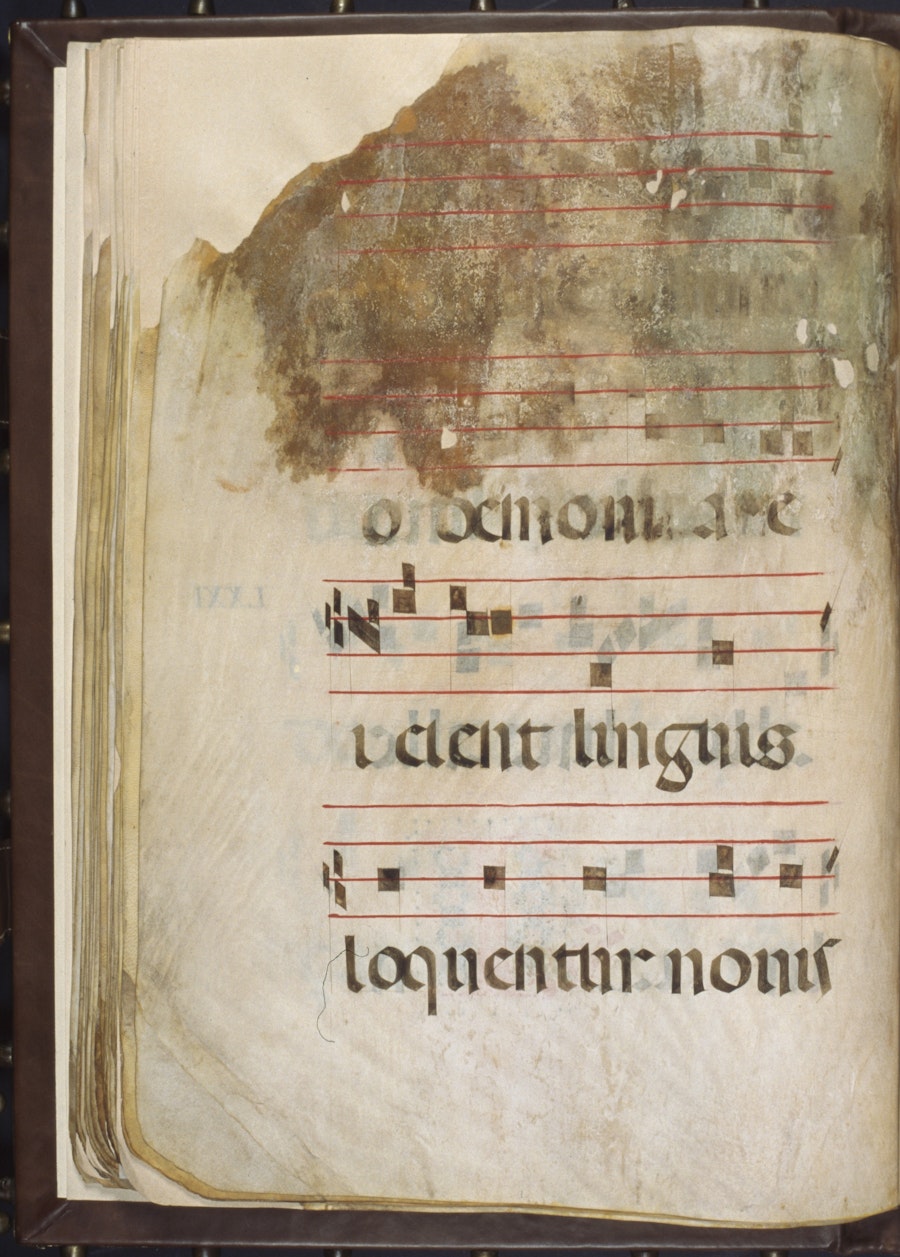 o demonia e
iicient linguis
loquentur nouis
LXXI